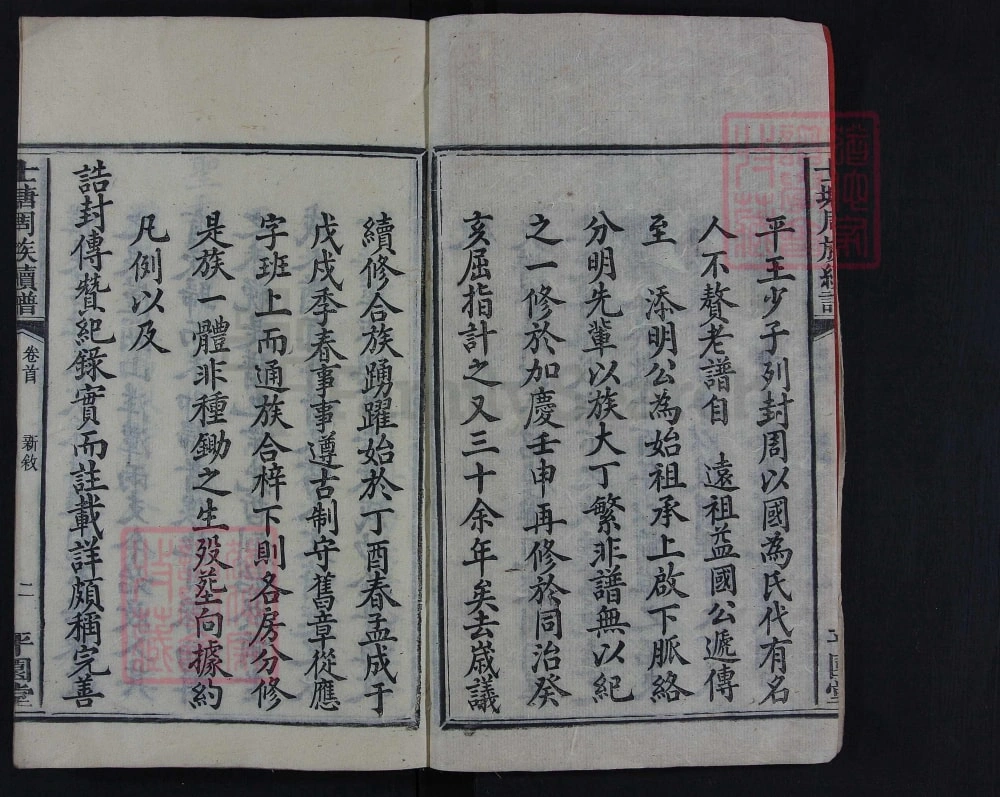 平王少子列封周以國為氏代有名
人不贅老譜自　遠祖益國公遞傳
至　添明公為始祖承上啟下脈絡
分明先輩以族大丁繁非譜無以紀
之一修於加慶壬申再修於同治癸
亥屈指計之又三十余年矣去歲議
續修合族踴躍始於丁酉春孟成于
戊戌季春事事遵古制守舊章從應
字班上而通族合梓下則各房分修
是族一體非種鋤之生殁塟向據約
凡例以及
誥封傳贊紀錄實而註載詳頗稱完善
士塘周族續譜
卷首
新敘
二
平園堂